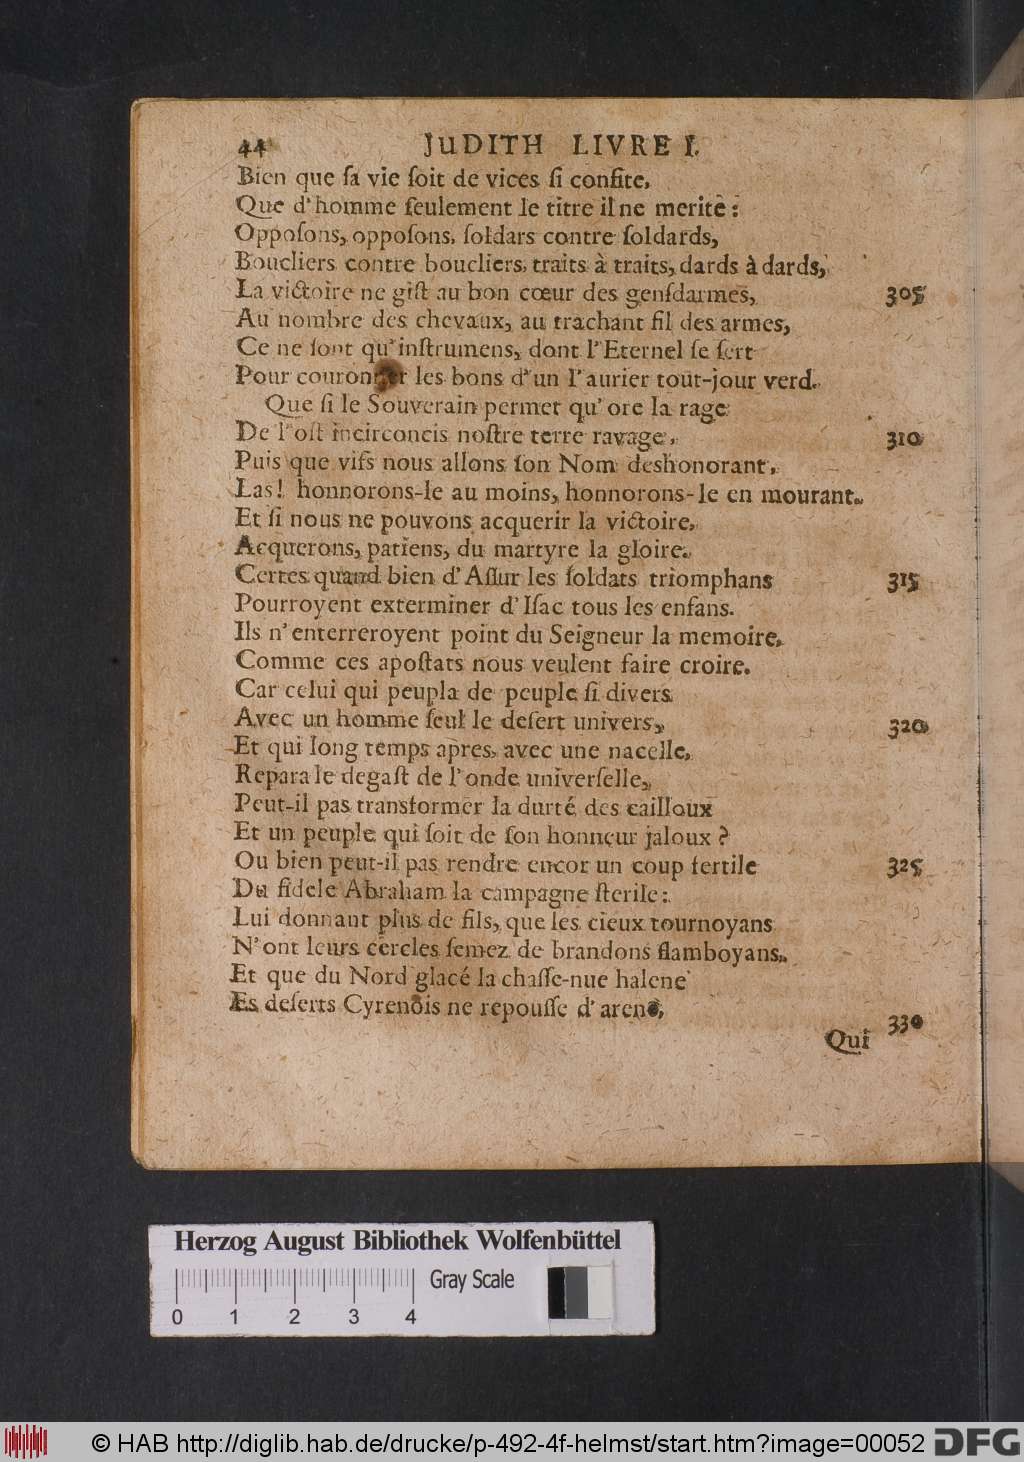 44 JUDITH LIVRE I.
Bien que ſa vie ſoit de vices ſi confite,
Que d'homme ſeulement le titre il ne merite :
Oppoſons, oppoſons, ſoldars contre ſoldards,
Boucliers contre boucliers, traits à traits, dards à dards,
La victoire ne giſt au bon cœur des genſdarmes, 305
Au nombre des chevaux, au trachant fil des armes,
Ce ne ſont qu'inſtrumens, dont l'Eternel ſe ſert
Pour couronner les bons d'un l'aurier tout-jour verd.
Que ſi le Souverain permet qu'ore la rage
De l'oſt incirconcis noſtre terre ravage, 310
Puis que vifs nous allons ſon Nom deshonorant,
Las! honnorons-le au moins, honnorons-le en mourant.
Et ſi nous ne pouvons acquerir la victoire,
Acquerons, patiens, du martyre la gloire.
Certes quand bien d'Aſſur les ſoldats triomphans 315
Pourroyent exterminer d'Iſac tous les enfans.
Ils n'enterreroyent point du Seigneur la memoire,
Comme ces apoſtats nous veulent faire croire.
Car celui qui peupla de peuple ſi divers
Avec un homme ſeul le deſert univers, 320
Et qui long temps apres, avec une nacelle,
Repara le degaſt de l'onde univerſelle,
Peut-il pas transformer la durté des cailloux
Et un peuple qui ſoit de ſon honneur jaloux ?
Ou bien peut-il pas rendre encor un coup fertile 325
Du fidele Abraham la campagne ſterile :
Lui donnant plus de fils, que les cieux tournoyans
N'ont leurs cercles ſemez de brandons flamboyans,
Et que du Nord glacé la chaſſe-nue halene
Es deſerts Cyrenois ne repouſſe d'arene, 330
Qui
Herzog August Bibliothek Wolfenbüttel
Gray Scale
0 1 2 3 4
© HAB http://diglib.hab.de/drucke/p-492-4f-helmst/start.htm?image=00052 DFG